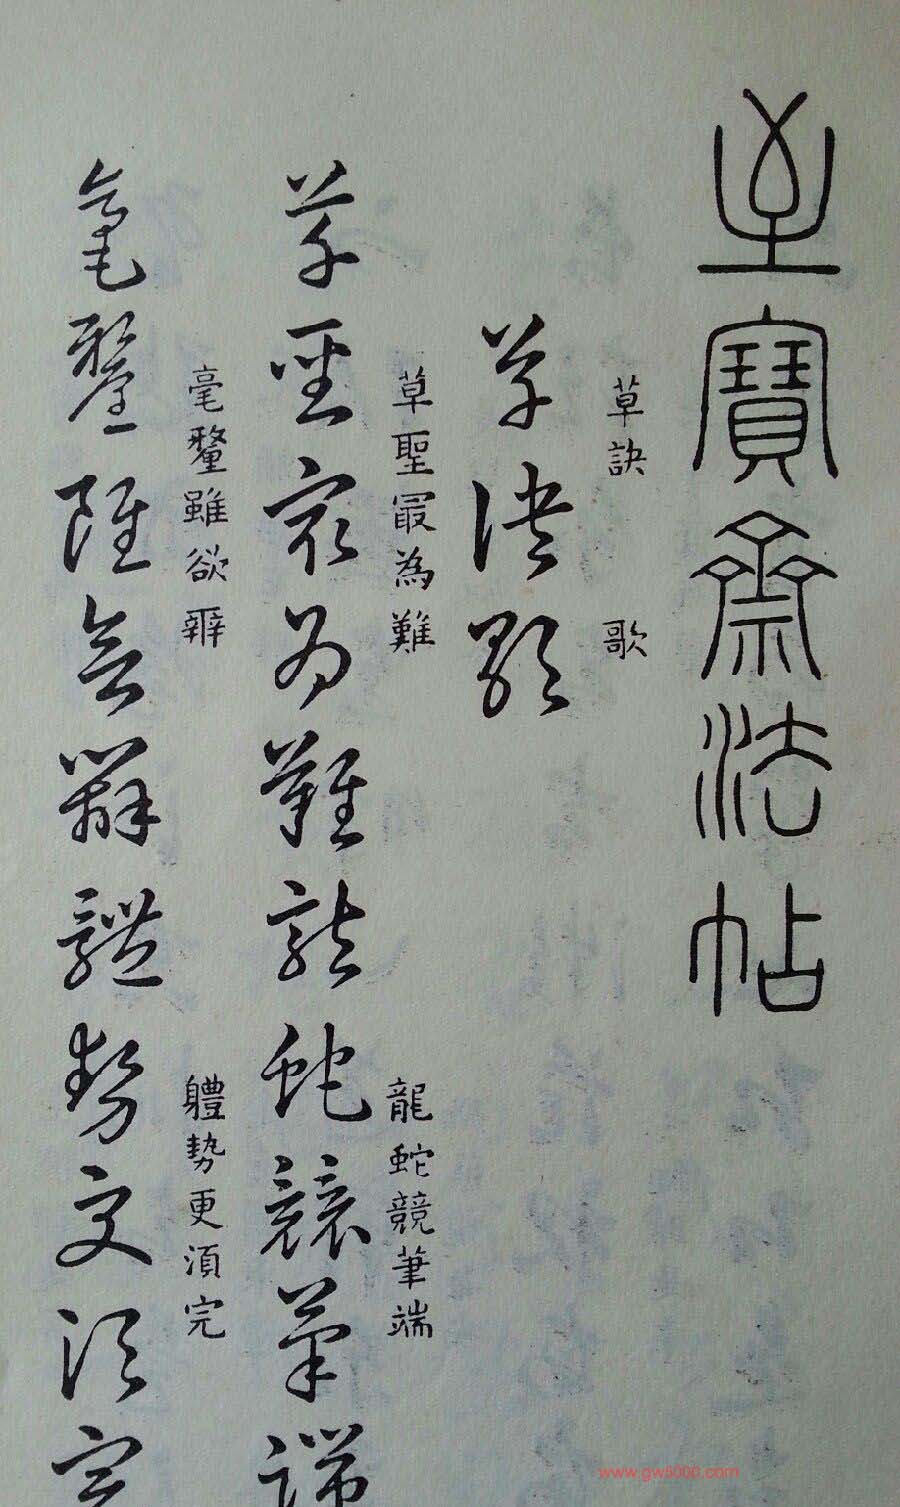 至寶齋法帖
草訣 歌
草訣歌
草聖最為難 龍蛇競筆端
草聖最為難龍蛇競筆端
毫釐雖欲辨 軆勢更湏完
毫釐雖欲辨體勢更須完
www.gw5000.com